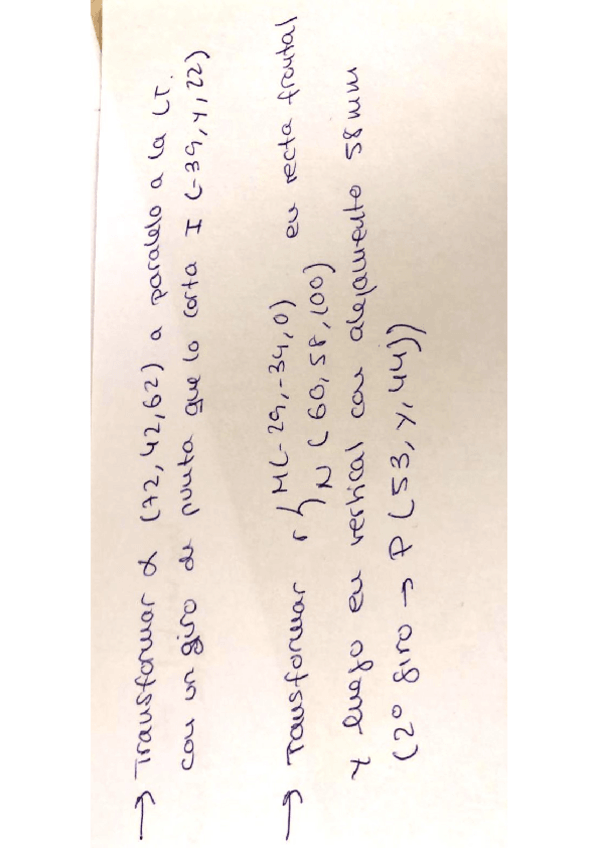 → Transformar α (72, 42, 62) a paralelo a la LT.
con un giro de punta que lo corta I (-39, y, 22)
→ Transformar r { M(-29, -34, 0)
N (60, 58, 100) en recta frontal
y luego en vertical con alejamiento 58 mm
(2º giro → P (53, y, 44))